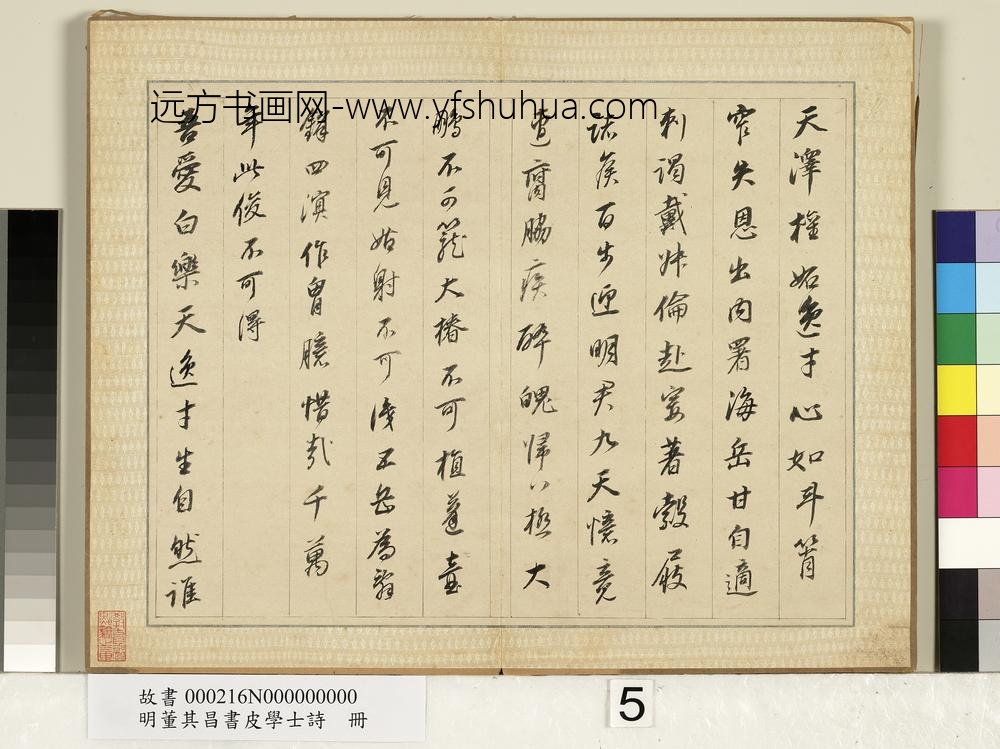 天澤權妬逸才心如斗筲
窄失恩出内署海岳甘自適
刺謁戴赴宴著縠屐
諸侯百步迎明君九天憶竟
遭腐脇疾醉魄歸八極大
鵬不可籠大椿不可植蓬壺
不可見姑射不可識五岳為辭
鋒四溟作胷臆惜哉千萬
年此俊不可得
吾愛白樂天逸才生自然誰
远方书画网-www.yfshuhua.com
故書 000216N000000000
明董其昌書皮學士詩 冊
5